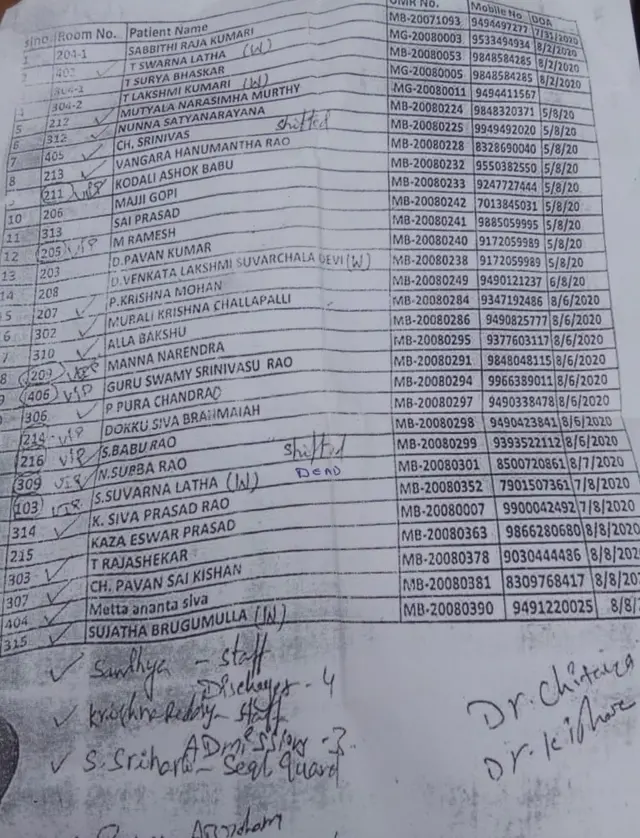 slno. Room No. Patient Name UMR No. Mobile No DOA
1 204-1 SABBITHI RAJA KUMARI MB-20071093 9494497277 7/31/2020
402 T SWARNA LATHA (W) MG-20080003 9533494934 8/2/2020
304-1 T SURYA BHASKAR MB-20080053 9848584285 8/2/2020
4 304-2 T LAKSHMI KUMARI (W) MG-20080005 9848584285 8/2/2020
5 212 MUTYALA NARASIMHA MURTHY MG-20080011 9494411567
6 312 NUNNA SATYANARAYANA MB-20080224 9848320371 5/8/20
7 405 CH. SRINIVAS shifted MB-20080225 9949492020 5/8/20
8 213 VANGARA HANUMANTHA RAO MB-20080228 8328690040 5/8/20
211 VIP KODALI ASHOK BABU MB-20080232 9550382550 5/8/20
10 206 MAJJI GOPI MB-20080233 9247727444 5/8/20
11 313 SAI PRASAD MB-20080242 7013845031 5/8/20
12 205 VIP M RAMESH MB-20080241 9885059995 5/8/20
13 203 D.PAVAN KUMAR MB-20080240 9172059989 5/8/20
14 208 D.VENKATA LAKSHMI SUVARCHALA DEVI (W) MB-20080238 9172059989 5/8/20
5 207 P.KRISHNA MOHAN MB-20080249 9490121237 6/8/20
6 302 MURALI KRISHNA CHALLAPALLI MB-20080284 9347192486 8/6/2020
7 310 ALLA BAKSHU MB-20080286 9490825777 8/6/2020
8 209 VIP MANNA NARENDRA MB-20080295 9377603117 8/6/2020
9 406 VIP GURU SWAMY SRINIVASU RAO MB-20080291 9848048115 8/6/2020
306 P PURA CHANDRAO MB-20080294 9966389011 8/6/2020
214 VIP DOKKU SIVA BRAHMAIAH MB-20080297 9490338478 8/6/2020
216 VIP S.BABU RAO MB-20080298 9490423841 8/6/2020
309 VIP N.SUBBA RAO shifted MB-20080299 9393522112 8/6/2020
103 VIP S.SUVARNA LATHA (W) DEAD MB-20080301 8500720861 8/7/2020
314 K. SIVA PRASAD RAO MB-20080352 7901507361 7/8/2020
215 KAZA ESWAR PRASAD MB-20080007 9900042492 7/8/2020
303 T RAJASHEKAR MB-20080363 9866280680 8/8/2020
307 CH. PAVAN SAI KISHAN MB-20080378 9030444486 8/8/202
404 Metta ananta siva MB-20080381 8309768417 8/8/202
315 SUJATHA BRUGUMULLA (W) MB-20080390 9491220025 8/8/
✓ Sandhya - Staff
Discharges - 4
✓ Krishna Reddy - Staff
ADmission - 3
✓ S. Srihari - Guard
Dr. Kishore